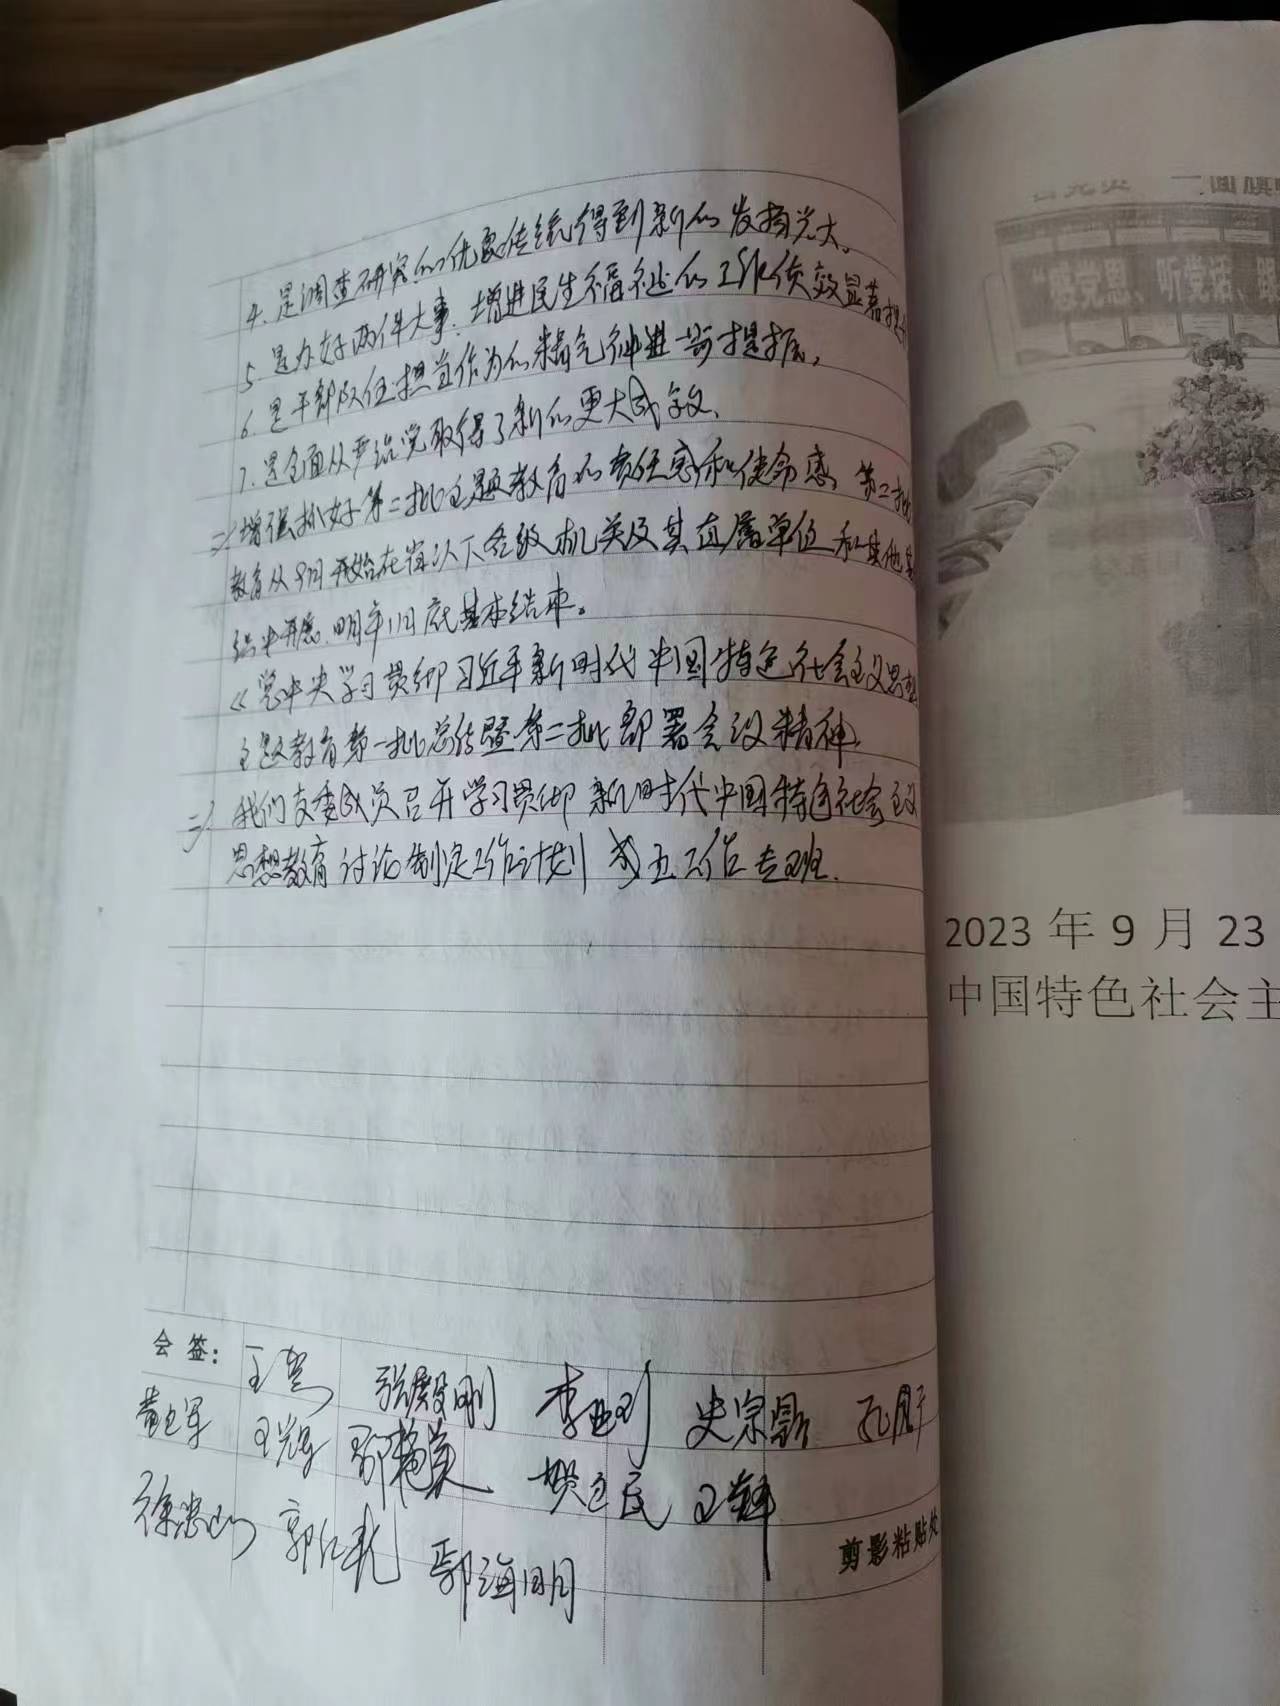 4. 是调查研究的优良传统得到新的发扬光大。
5. 是办好两件大事、增进民生福祉的工作质效显著提升
6. 是干部队伍担当作为的精气神进一步提振,
7. 是全面从严治党取得了新的更大成效、
二、增强抓好第二批主题教育的责任感和使命感、第二批
教育从9月开始在省以下各级机关及其直属单位和其他基
织中开展、明年1月底基本结束。
《党中央学习贯彻习近平新时代中国特色社会主义思想
主题教育第一批总结暨第二批部署会议精神、
三、我们支委成员召开学习贯彻新时代中国特色社会主义
思想教育讨论制定工作计划 成立工作专班.
会签:
张殿刚 李亚刚 史宗
王辉
郭海明
剪影粘贴处
一面旗
“感党恩、听党话、跟
2023 年 9 月 23
中国特色社会主